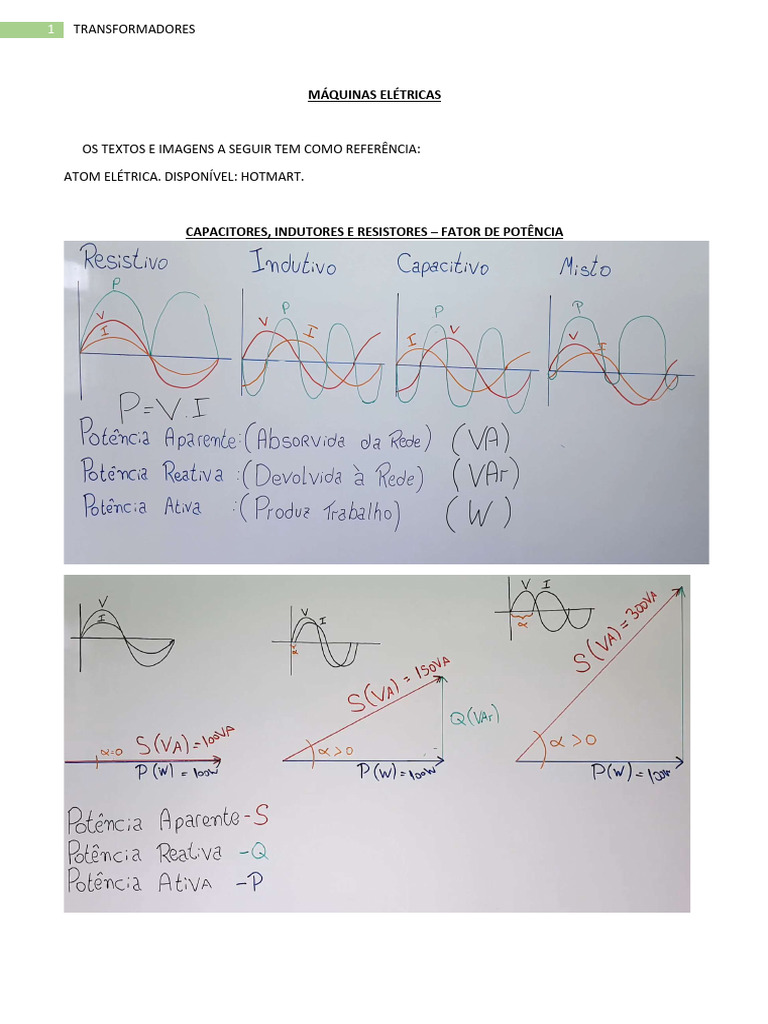 1 TRANSFORMADORES
MÁQUINAS ELÉTRICAS
OS TEXTOS E IMAGENS A SEGUIR TEM COMO REFERÊNCIA:
ATOM ELÉTRICA. DISPONÍVEL: HOTMART.
CAPACITORES, INDUTORES E RESISTORES – FATOR DE POTÊNCIA
Resistivo Indutivo Capacitivo Misto
P V I
P V I
P V I
P V I
P=V.I
Potência Aparente:(Absorvida da Rede) (VA)
Potência Reativa :(Devolvida à Rede) (VAr)
Potência Ativa :(Produz Trabalho) (W)
V I
V I α
V I α
α=0 S(VA)=100VA
P(W)=100W
S(VA)=150VA
Q(VAr)
α>0
P(W)=100W
S(VA)=300VA
α>0
P(W)=100W
Potência Aparente-S
Potência Reativa -Q
Potência Ativa -P